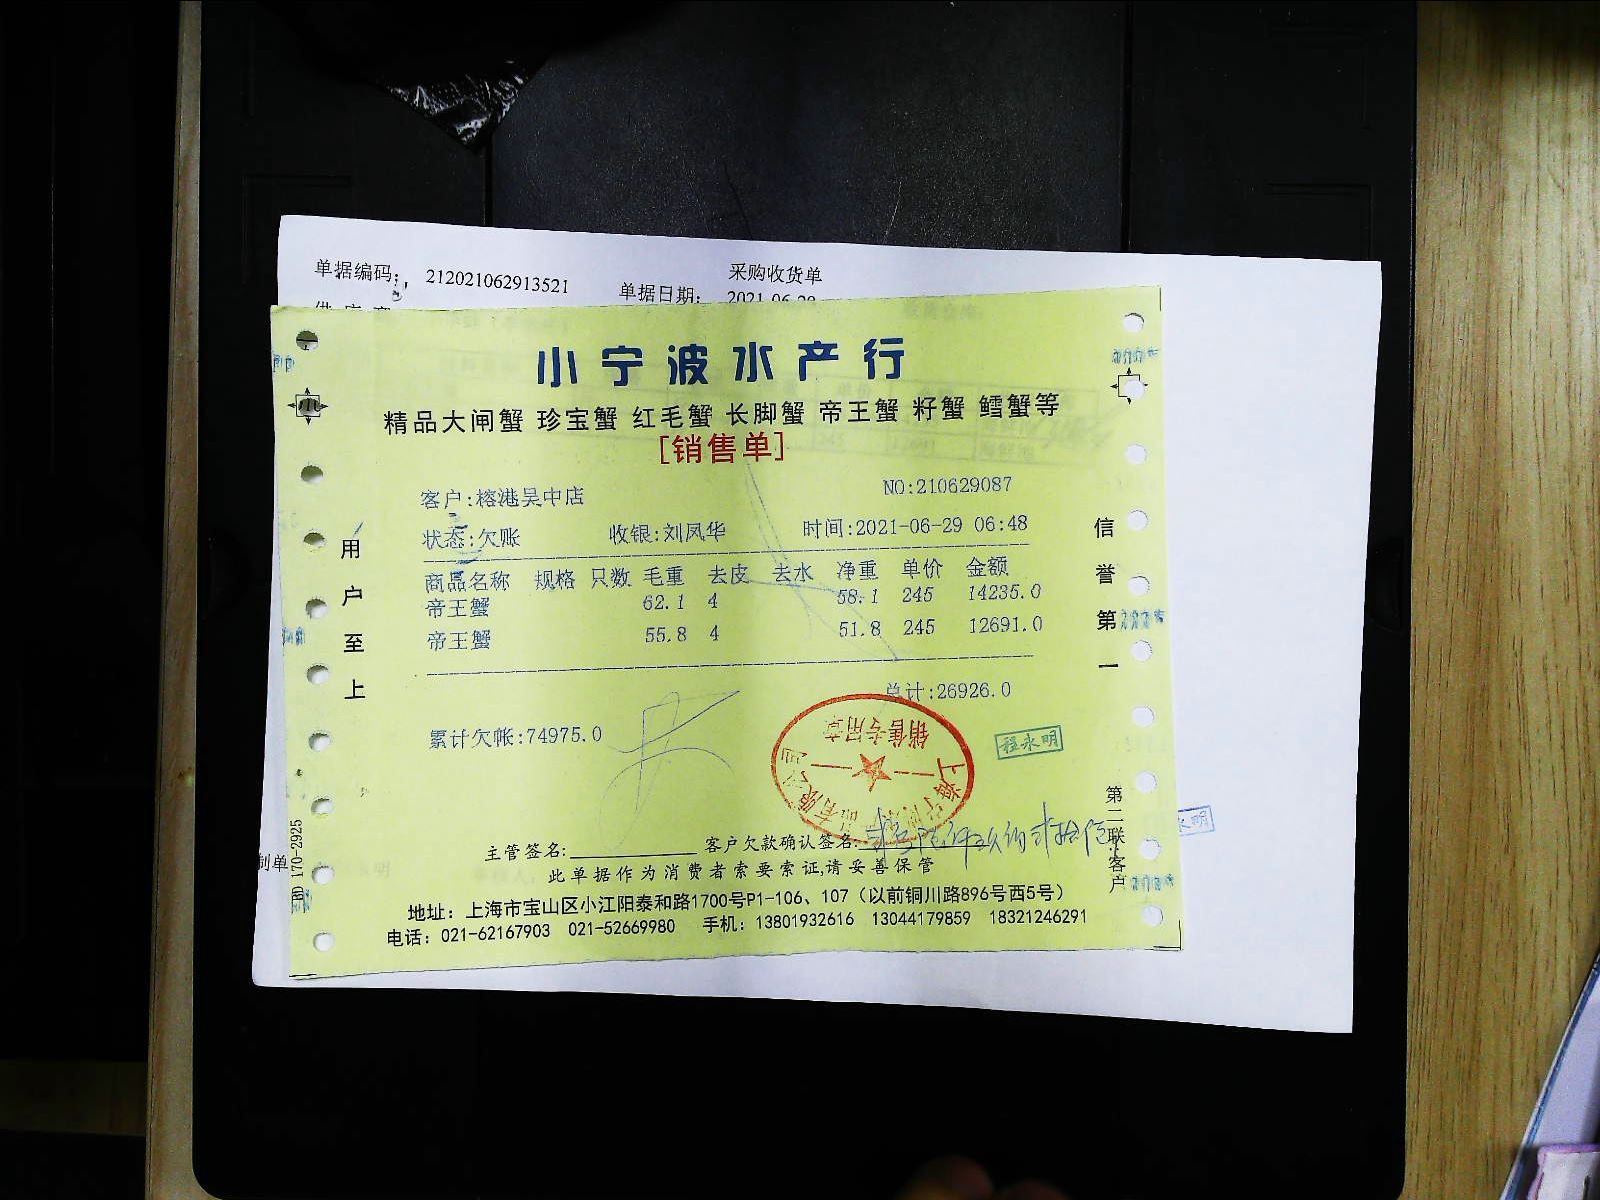 采购收货单
单据编码: 212021062913521 单据日期:
小宁波水产行
精品大闸蟹 珍宝蟹 红毛蟹 长脚蟹 帝王蟹 籽蟹 鳕蟹等
[销售单]
客户:榕港吴中店 NO:210629087
状态:欠账 收银:刘凤华 时间:2021-06-29 06:48
商品名称 规格 只数 毛重 去皮 去水 净重 单价 金额
帝王蟹 62.1 4 58.1 245 14235.0
帝王蟹 55.8 4 51.8 245 12691.0
总计:26926.0
累计欠帐:74975.0
销售专用章
程永明
主管签名: 客户欠款确认签名:
此单据作为消费者索要索证,请妥善保管
地址：上海市宝山区小江阳泰和路1700号P1-106、107（以前铜川路896号西5号）
电话：021-62167903 021-52669980 手机：13801932616 13044179859 18321246291
用户至上
信誉第一
第二联客户
170-2925
制单
永明